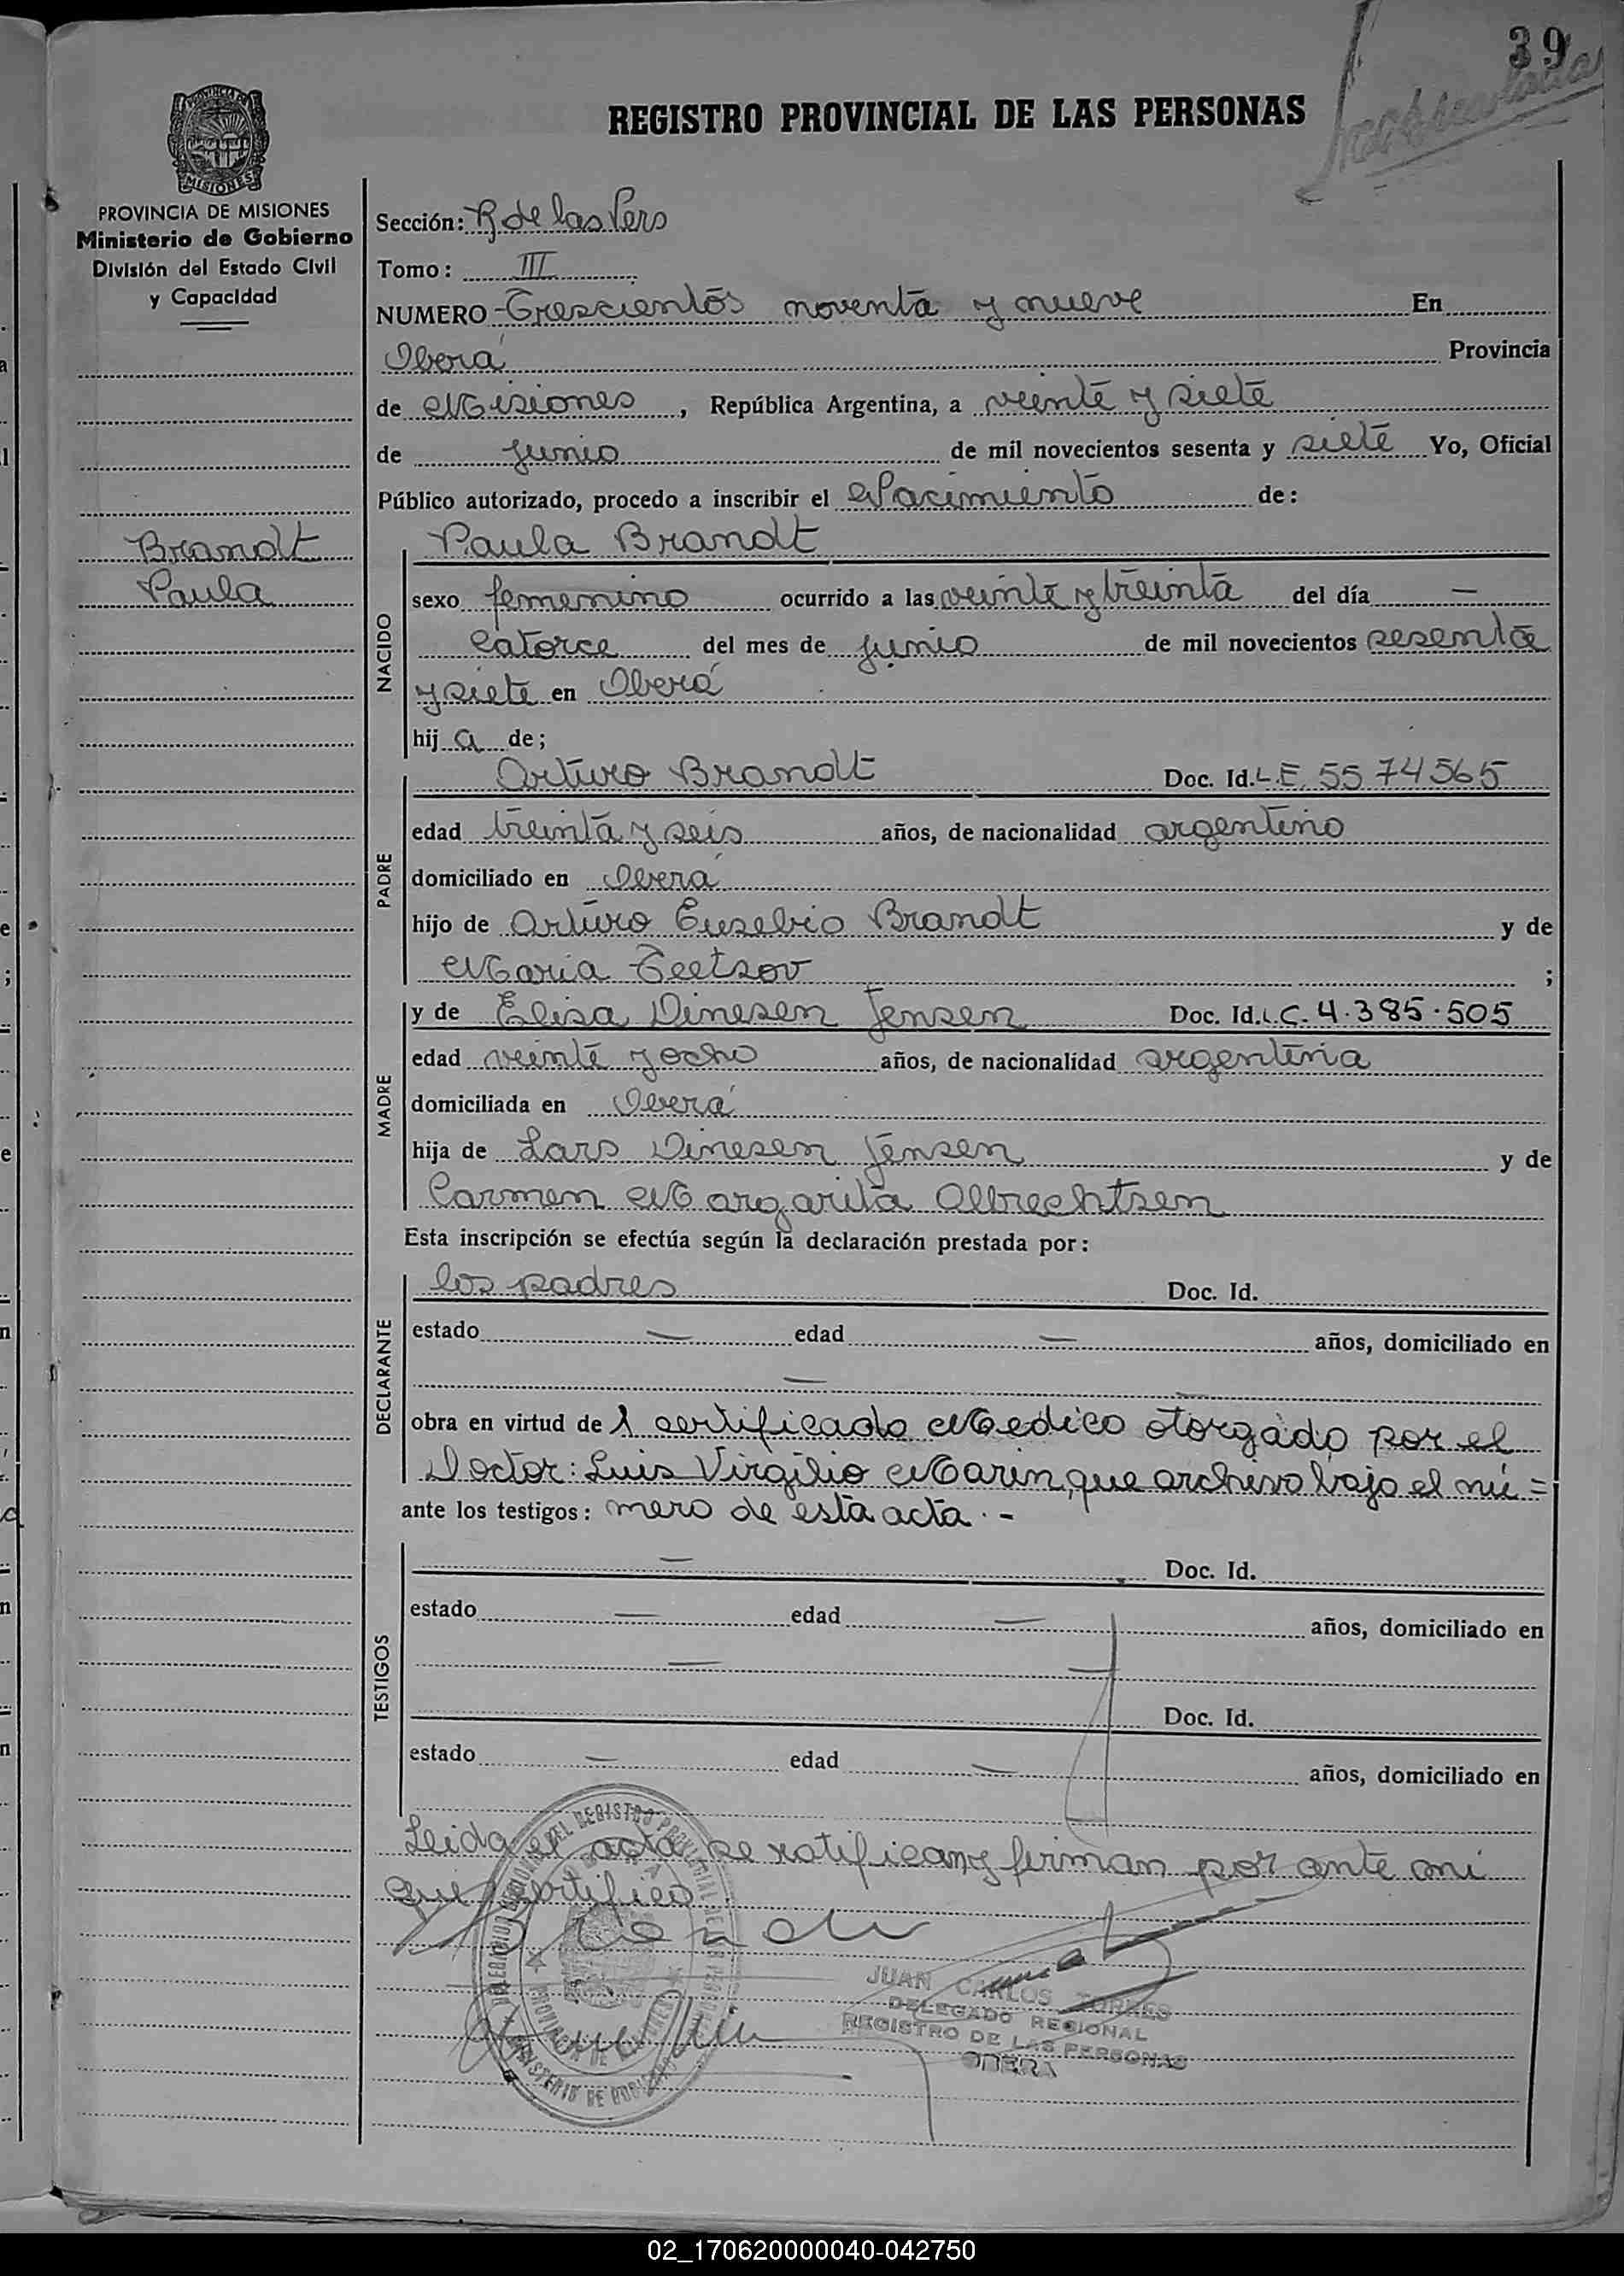 39
REGISTRO PROVINCIAL DE LAS PERSONAS
PROVINCIA DE MISIONES
Ministerio de Gobierno
División del Estado Civil
y Capacidad
Sección: R de las Pers
Tomo: III
NUMERO Trescientos noventa y nueve En
Oberá Provincia
de Misiones, República Argentina, a veinte y siete
de junio de mil novecientos sesenta y siete Yo, Oficial
Público autorizado, procedo a inscribir el Nacimiento de:
Brandt
Paula
NACIDO
Paula Brandt
sexo femenino ocurrido a las veinte y treinta del día —
catorce del mes de junio de mil novecientos sesenta
y siete en Oberá
hij a de;
PADRE
Arturo Brandt Doc. Id. L.E. 5574565
edad treinta y seis años, de nacionalidad argentino
domiciliado en Oberá
hijo de Arturo Eusebio Brandt y de
Maria Teetzov ;
MADRE
y de Elisa Dinesen Jensen Doc. Id. L.C. 4.385.505
edad veinte y ocho años, de nacionalidad argentina
domiciliada en Oberá
hija de Lars Dinesen Jensen y de
Carmen Margarita Albrechtsen
Esta inscripción se efectúa según la declaración prestada por:
DECLARANTE
los padres Doc. Id.
estado — edad — años, domiciliado en
—
obra en virtud de 1 certificado Medico otorgado por el
Doctor: Luis Virgilio Marin, que archivo bajo el nú=
ante los testigos: mero de esta acta.-
TESTIGOS
— Doc. Id.
estado — edad — años, domiciliado en
—
Doc. Id.
estado — edad — años, domiciliado en
Leida el acta, se ratifican y firman por ante mi
que certifico.
JUAN CARLOS TORRES
DELEGADO REGIONAL
REGISTRO DE LAS PERSONAS
OBERA
02_170620000040-042750